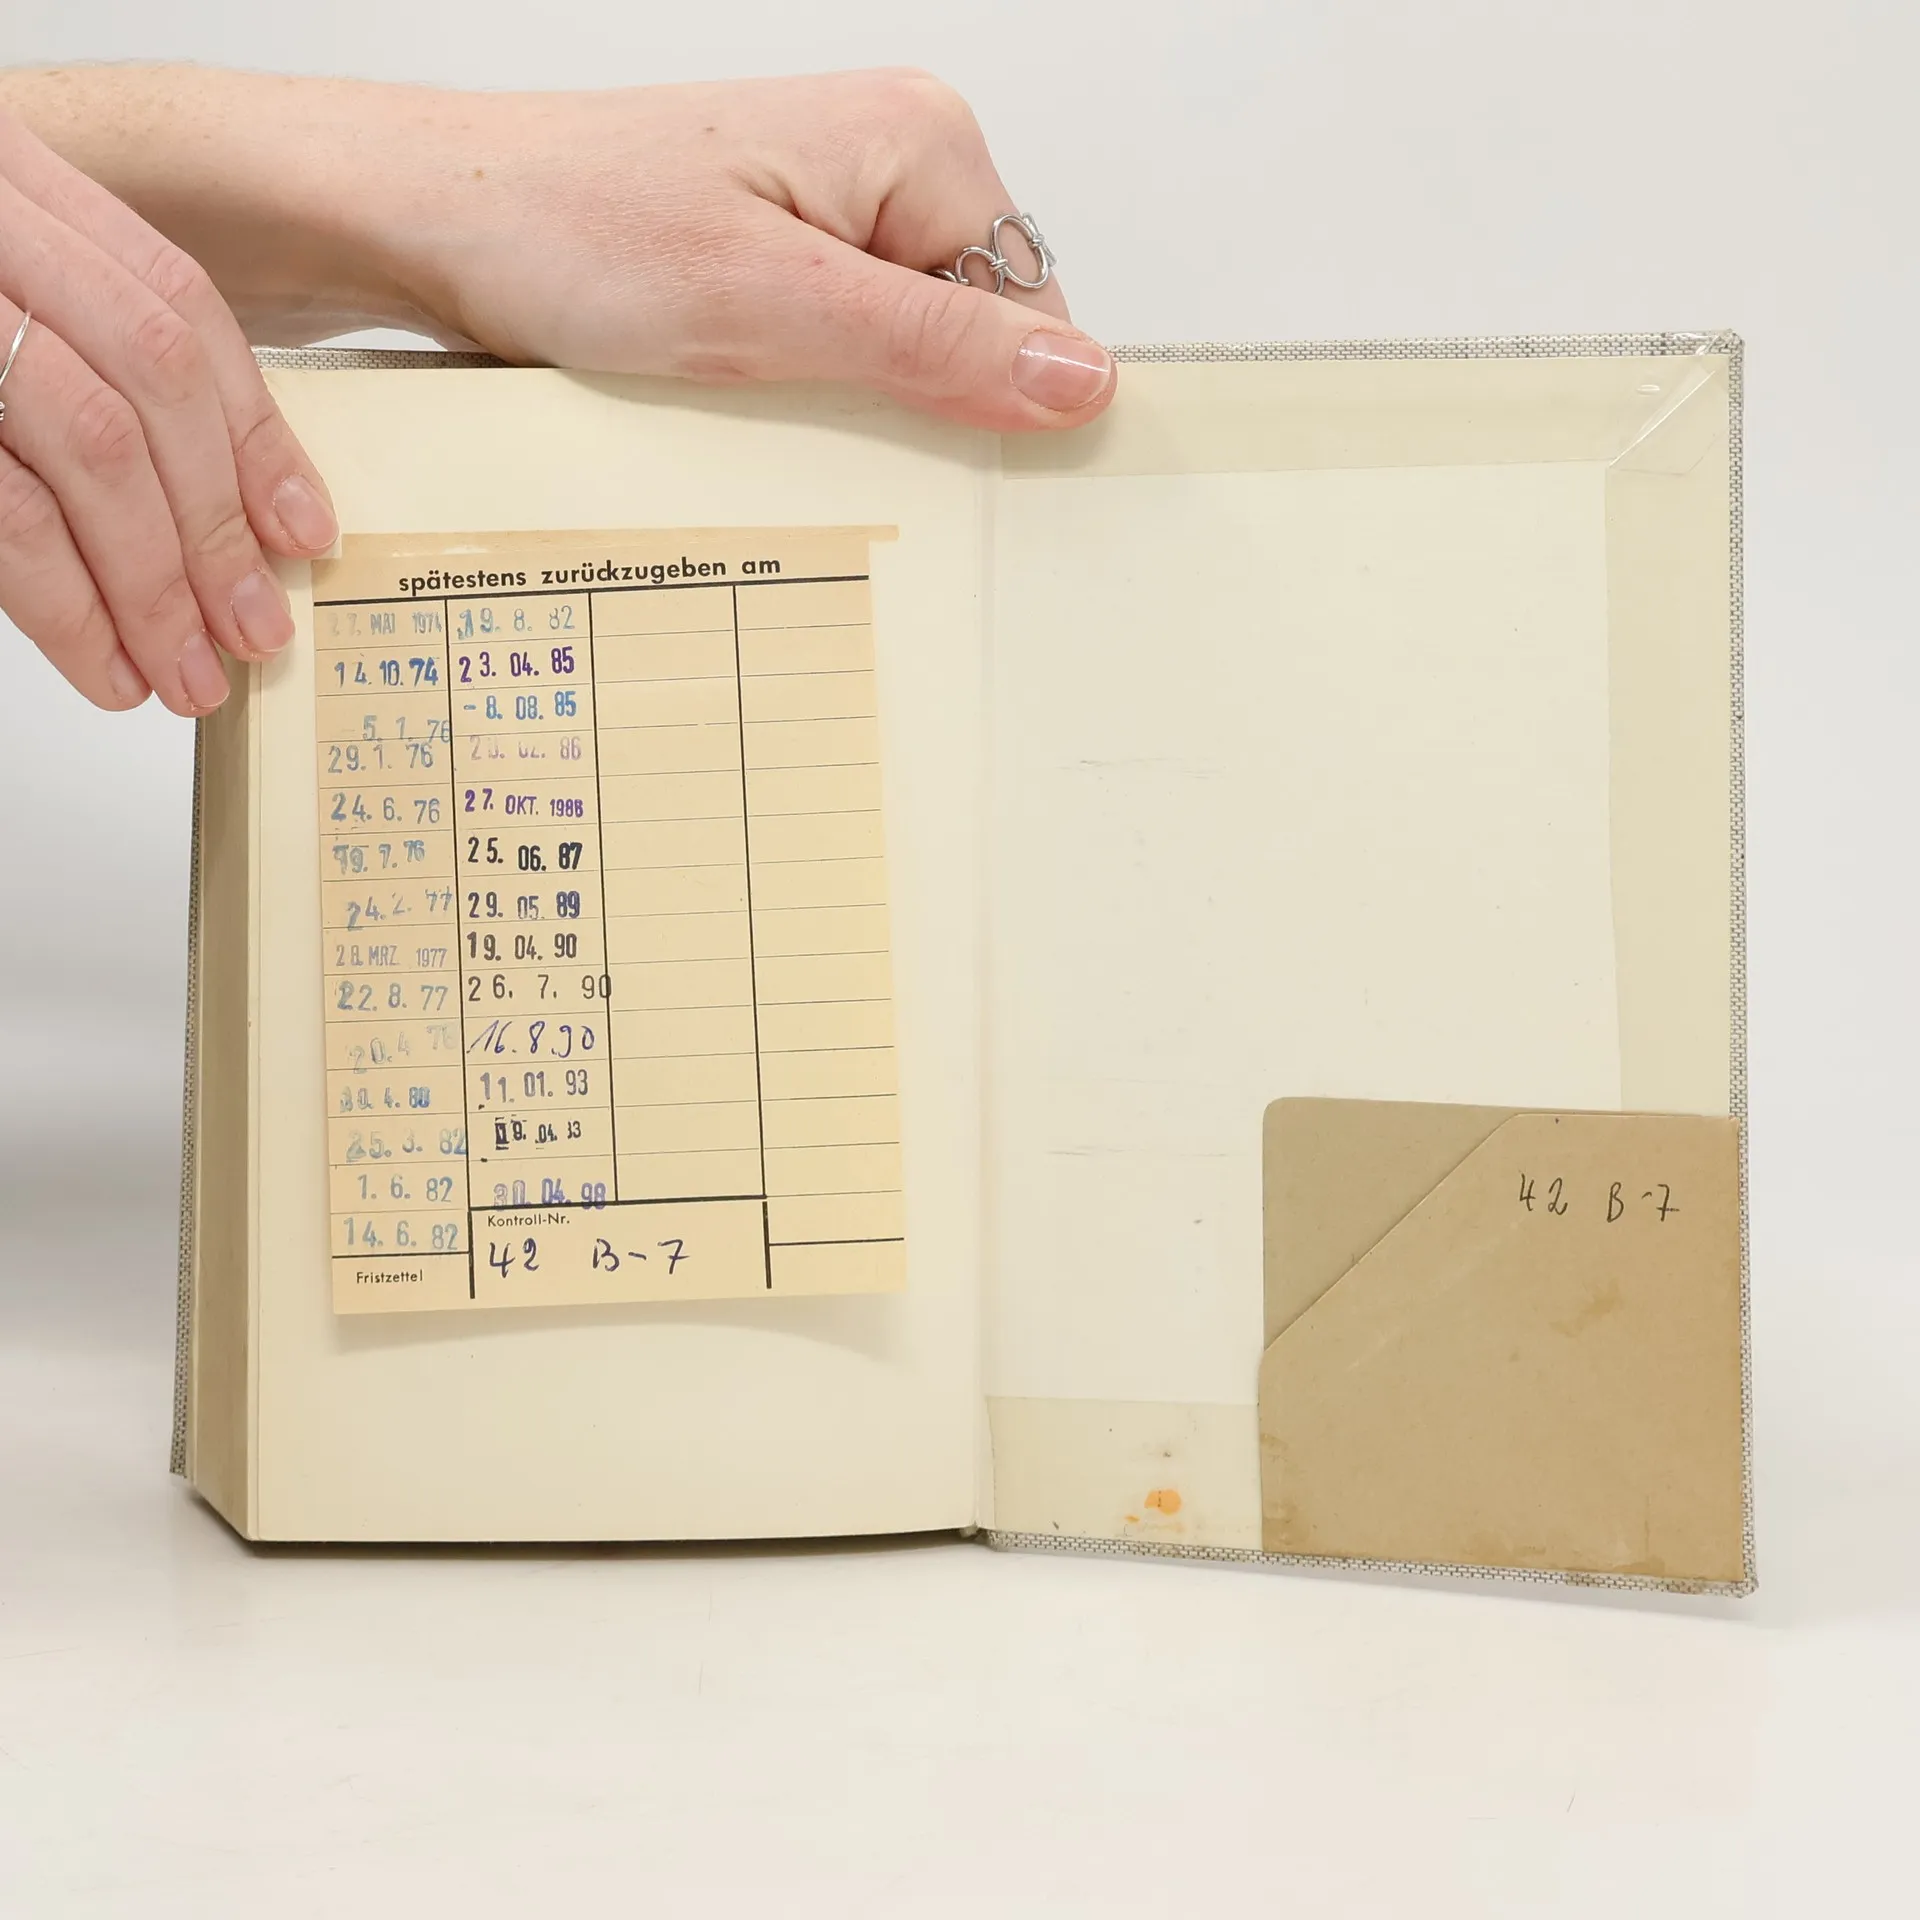 spätestens zurückzugeben am
27. MAI 1974
14.10.74
- 5. 1. 76
29. 1. 76
24. 6. 76
19. 7. 76
24. 2. 77
28. MRZ. 1977
22. 8. 77
20. 4 78
30. 4. 80
25. 3. 82
1. 6. 82
14. 6. 82
19. 8. 82
23. 04. 85
- 8. 08. 85
02. 86
27. OKT. 1986
25. 06. 87
29. 05. 89
19. 04. 90
26. 7. 90
16.8.90
11. 01. 93
19. 04. 93
30. 04. 98
Kontroll-Nr.
42 B-7
Fristzettel
42 B-7